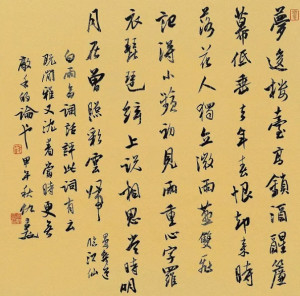 夢後樓臺高鎖酒醒簾
幕低垂去年春恨却来時
落花人獨立微雨燕雙飛
記得小蘋初見兩重心字羅
衣琵琶絃上説相思當時明
月在曾照彩雲歸
晏幾道
臨江仙
白雨齋詞話評此詞有云
既閑雅又沈着當時更無
敵手的論也 甲午秋